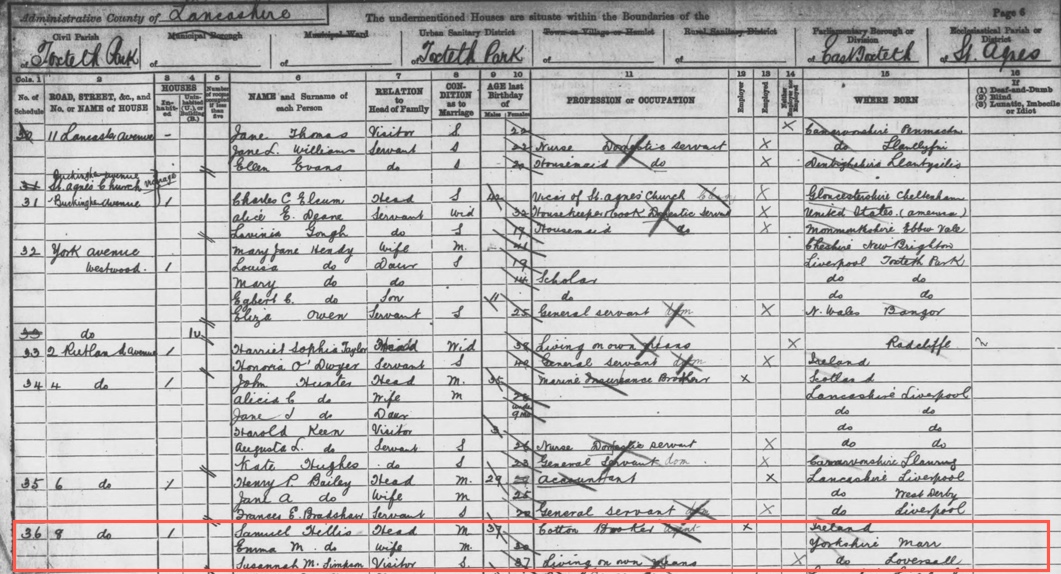 Administrative County of Lancashire The undermentioned Houses are situate within the Boundaries of the Page 6
Civil Parish Municipal Borough Municipal Ward Urban Sanitary District Town or Village or Hamlet Rural Sanitary District Parliamentary Borough or Division Ecclesiastical Parish or District
of Toxteth Park of of of Toxteth Park of of of East Toxteth of St. Agnes
Cols. 1 2 3 4 5 6 7 8 9 10 11 12 13 14 15 16
No. of Schedule ROAD, STREET, &c., and No. or NAME of HOUSE HOUSES Inhabited Uninhabited (U.), or Building (B.) Number of rooms occupied if less than five NAME and Surname of each Person RELATION to Head of Family CONDITION as to Marriage AGE last Birthday of Males Females PROFESSION or OCCUPATION Employer Employed Neither Employer nor Employed WHERE BORN If (1) Deaf-and-Dumb (2) Blind (3) Lunatic, Imbecile or Idiot
30 11 Lancaster Avenue - Jane Thomas Visitor S X Carnarvonshire Penmachno
Jane L. Williams Servant S 22 Nurse Domestic servant X do Llanllyfni
Ellen Evans do S Housemaid do X Denbighshire Llantysilio
Buckingham Avenue
31 St. Agnes Church Vicarage
31 Buckingham Avenue 1 Charles C Elcum Head S 42 Vicar of St. Agnes Church X Gloucestershire Cheltenham
Alice E. Deane Servant Wid 32 Housekeeper Cook Domestic Servant X United States (America)
Lavinia Gough do S 17 Housemaid do X Monmouthshire Ebbw Vale
32 York Avenue Mary Jane Hendy Wife M. 41 Cheshire New Brighton
Westwood. 1 Louisa do Daur S 19 Liverpool Toxteth Park
Mary do do 14 Scholar do do
Egbert E. do Son 11 do do do
Eliza Owen Servant S 25 General servant dom X N. Wales Bangor
33 do 1u
33 2 Rutland Avenue 1 Harriet Sophia Taylor Head Wid 38 Living on own means X Radcliffe
Honoria O'Dwyer Servant S General servant dom X Ireland
34 4 do 1 John Hunter Head M. 35 Marine Insurance Broker X Scotland
Alicia C do Wife M Lancashire Liverpool
Jane I do Daur do do
Harold Keen Visitor 3 do do
Augusta L. do Servant S 26 Nurse Domestic servant X do do
Kate Hughes do S 23 General Servant dom X Carnarvonshire
35 6 do 1 Henry P Bailey Head M. 29 Accountant X Lancashire Liverpool
Jane A do Wife M 25 do West Derby
Frances E. Bradshaw Servant S General servant dom X do Liverpool
36 8 do 1 Samuel Hillis Head M 37 Cotton Broker Agent X Ireland
Emma M. do Wife M. 30 Yorkshire Marr
Susannah M. Simpson Visitor S 37 Living on own means X do Loversall